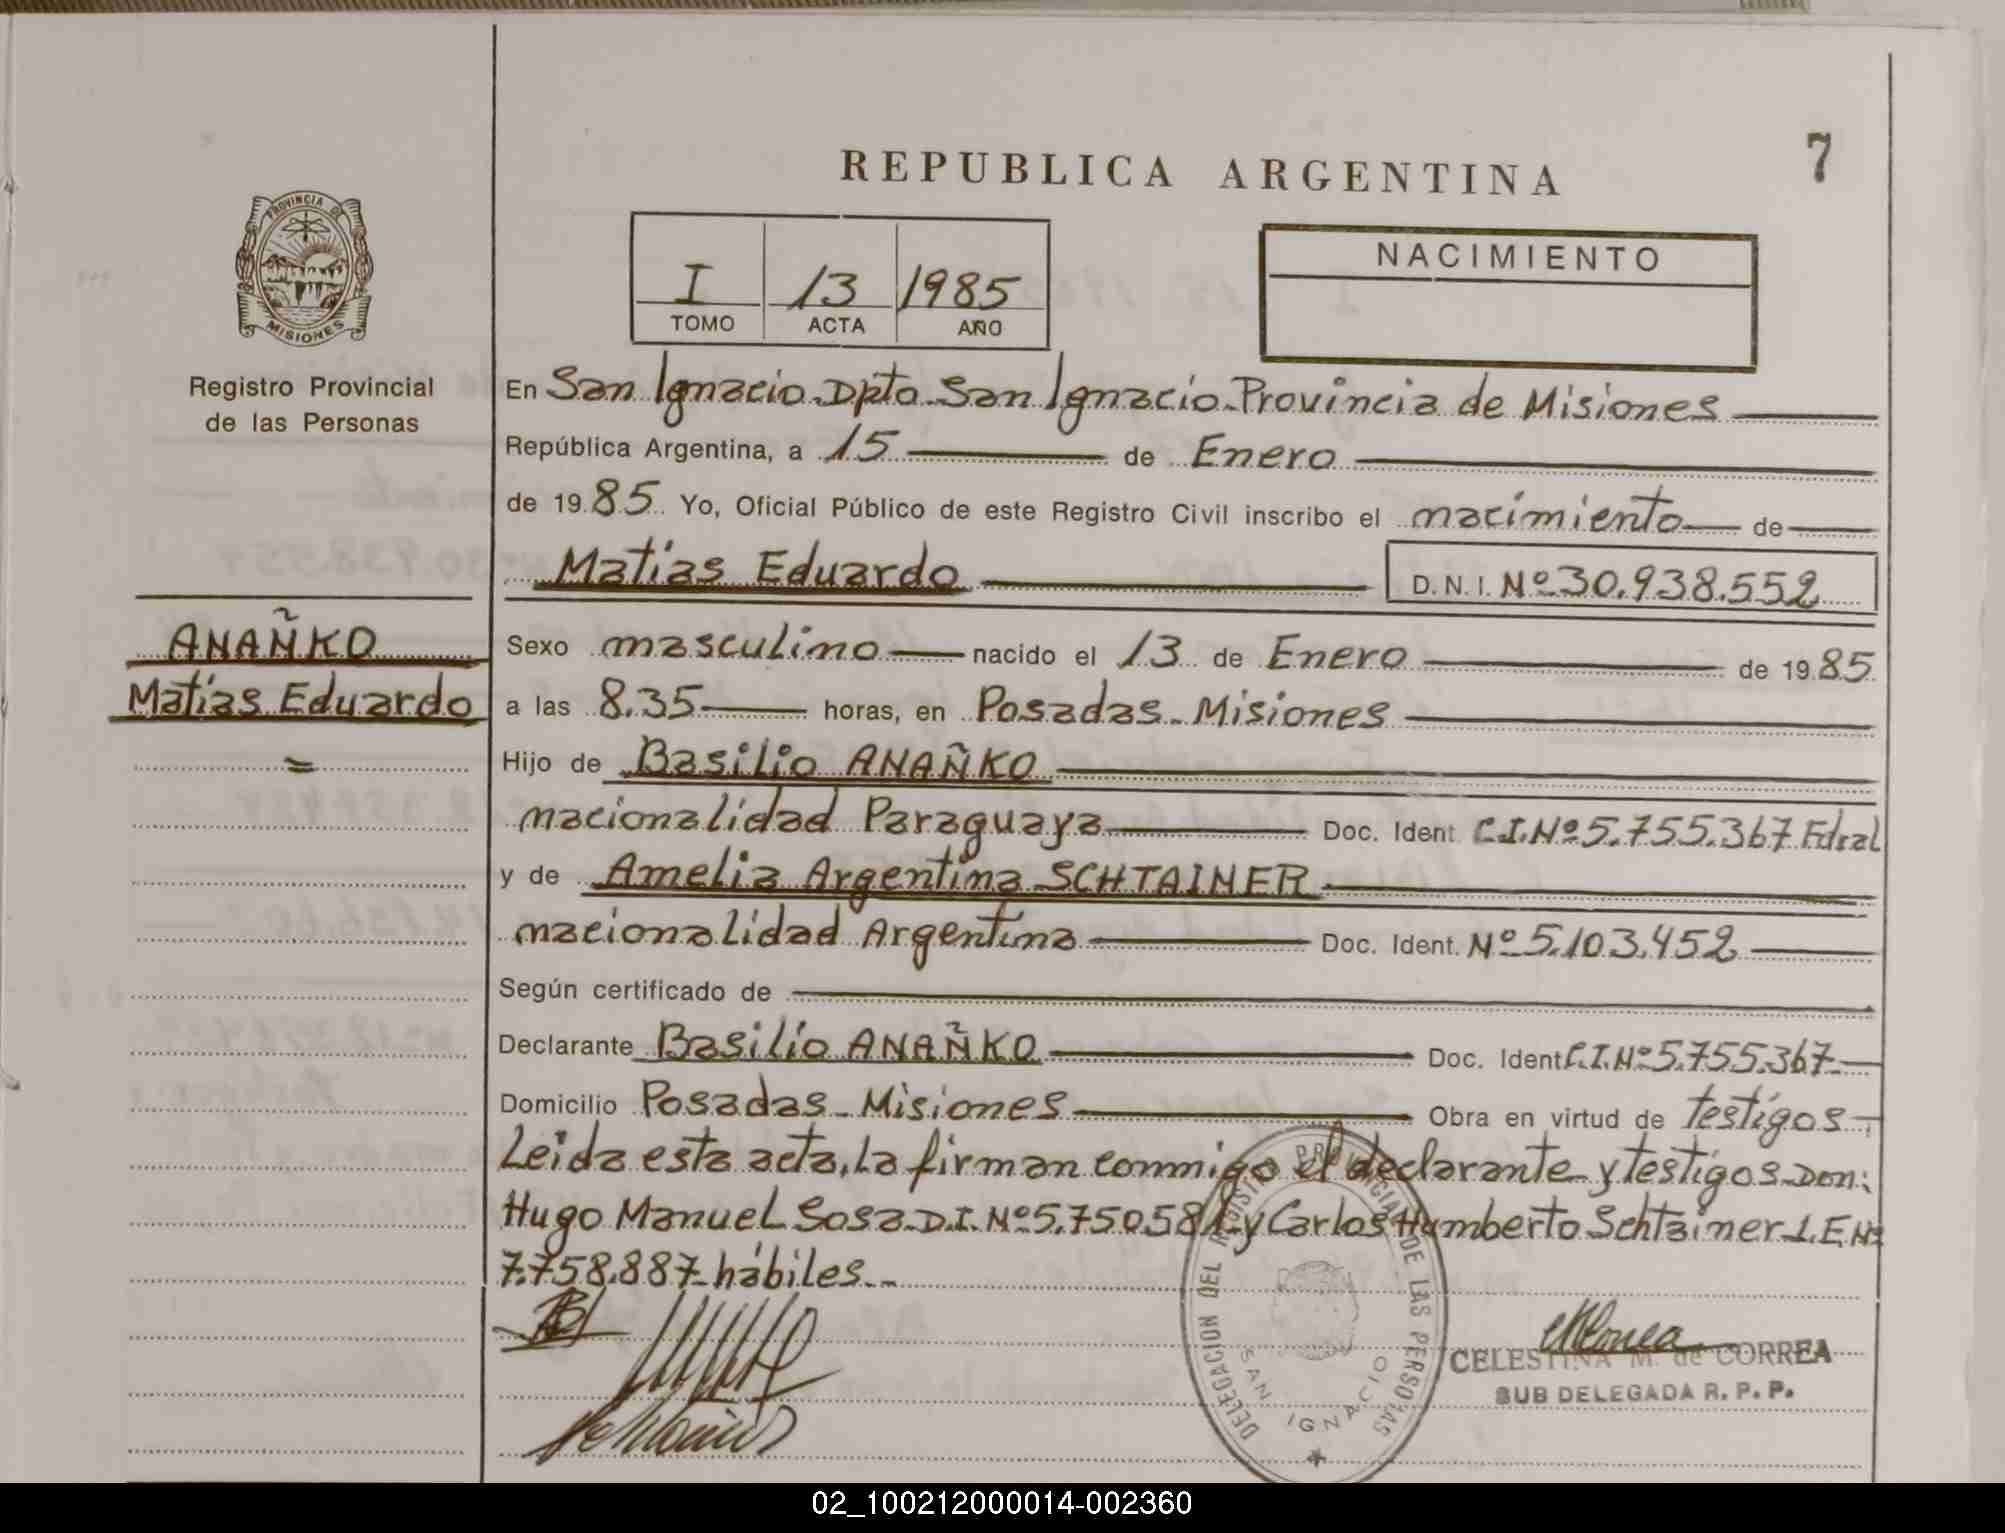 7
REPUBLICA ARGENTINA
PROVINCIA DE
MISIONES
Registro Provincial
de las Personas
I 13 1985
TOMO ACTA AÑO
NACIMIENTO
En San Ignacio. Dpto. San Ignacio. Provincia de Misiones
República Argentina, a 15 de Enero
de 1985 Yo, Oficial Público de este Registro Civil inscribo el nacimiento de
Matias Eduardo D. N. I. Nº 30.938.552
ANAÑKO
Matias Eduardo
=
Sexo masculino nacido el 13 de Enero de 1985
a las 8.35 horas, en Posadas - Misiones
Hijo de Basilio ANAÑKO
nacionalidad Paraguaya Doc. Ident. C.I.Nº 5.755.367 Fdral
y de Amelia Argentina SCHTAINER
nacionalidad Argentina Doc. Ident. Nº 5.103.452
Según certificado de
Declarante Basilio ANAÑKO Doc. Ident C.I.Nº 5.755.367
Domicilio Posadas - Misiones Obra en virtud de testigos
Leida esta acta, la firman conmigo el declarante y testigos Don:
Hugo Manuel Sosa D.I.Nº 5.750.581 y Carlos Humberto Schtainer L.E Nº
7.758.887 hábiles.
DELEGACION DEL REGISTRO PROVINCIAL DE LAS PERSONAS
SAN IGNACIO
CELESTINA M. de CORREA
SUB DELEGADA R. P. P.
02_100212000014-002360